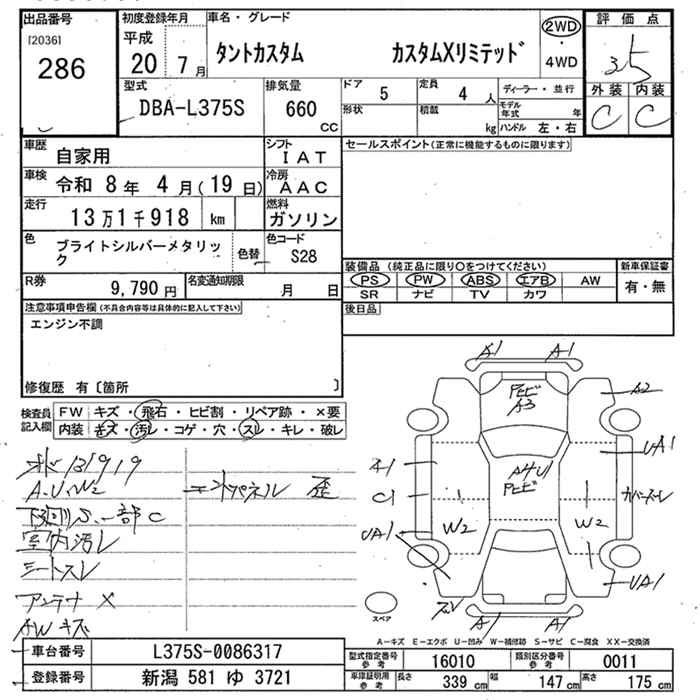 出品番号 初度登録年月 車名・グレード 評価点
[2036] 平成 2WD
286 20 年 7 月 タントカスタム カスタムXリミテッド ・ 3.5
4WD
型式 排気量 ドア 5 定員 4 人 ディーラー・並行 外装 内装
DBA-L375S 660 cc 形状 積載 kg モデル年式 年 C C
ハンドル 左・右
車歴 自家用 シフト IAT セールスポイント(正常に機能するものに限ります)
車検 令和 8 年 4 月(19 日) 冷房 AAC
走行 13万1千918 km 燃料 ガソリン
色 ブライトシルバーメタリック 色替 色コード S28
装備品(純正品に限り○をつけてください) 新車保証書
PS PW ABS エアB AW 有・無
SR ナビ TV カワ
R券 9,790 円 名変通知期限 月 日
注意事項申告欄(不具合内容等は具体的に記入して下さい) 後日品
エンジン不調
修復歴 有〔箇所 〕
検査員記入欄 FW キズ・飛石・ヒビ割・リペア跡・×要
内装 キズ・汚レ・コゲ・穴・スレ・キレ・破レ
131919
A.U.W2 エンドパネル 歪
下廻りS、一部C
室内汚レ
シートスレ
アンテナ ×
AWキズ
A1 A1
A3 A2
UA1
A4U1
C1
W2 W2
UA1
UA1
A1 A1
スペア
A-キズ E-エクボ U-凹み W-補修跡 S-サビ C-腐食 XX-交換済
車台番号 L375S-0086317 型式指定番号 参考 16010 類別区分番号 参考 0011
登録番号 新潟 581 ゆ 3721 車庫証明用 参考 長さ 339 cm 幅 147 cm 高さ 175 cm